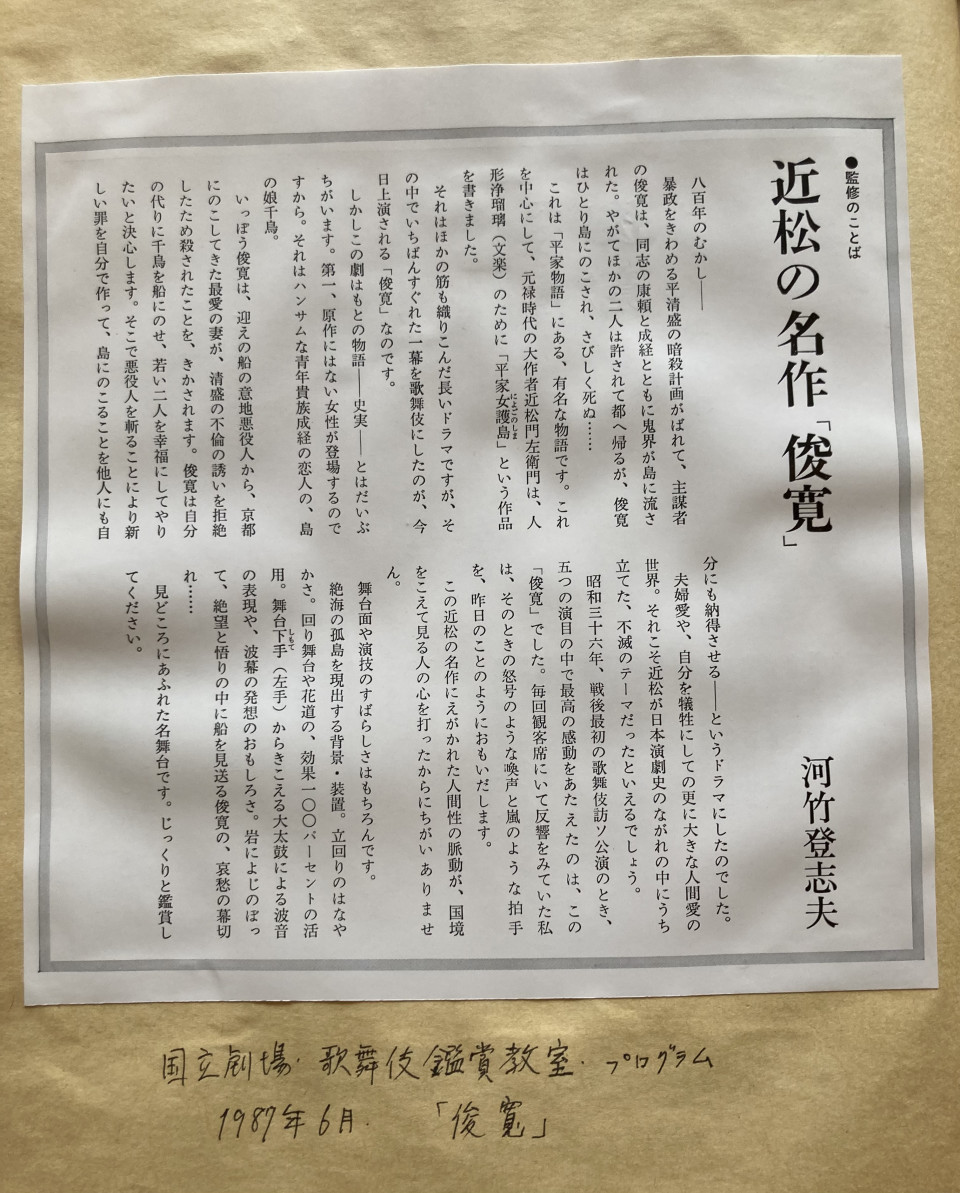 ●監修のことば
近松の名作「俊寛」
河竹登志夫
八百年のむかし――
暴政をきわめる平清盛の暗殺計画がばれて、主謀者
の俊寛は、同志の康頼と成経とともに鬼界が島に流さ
れた。やがてほかの二人は許されて都へ帰るが、俊寛
はひとり島にのこされ、さびしく死ぬ……
これは「平家物語」にある、有名な物語です。これ
を中心にして、元禄時代の大作者近松門左衛門は、人
形浄瑠璃（文楽）のために「平家女護島」という作品
にょごのしま
を書きました。
それはほかの筋も織りこんだ長いドラマですが、そ
の中でいちばんすぐれた一幕を歌舞伎にしたのが、今
日上演される「俊寛」なのです。
しかしこの劇はもとの物語――史実――とはだいぶ
ちがいます。第一、原作にはない女性が登場するので
すから。それはハンサムな青年貴族成経の恋人の、島
の娘千鳥。
いっぽう俊寛は、迎えの船の意地悪役人から、京都
にのこしてきた最愛の妻が、清盛の不倫の誘いを拒絶
したため殺されたことを、きかされます。俊寛は自分
の代りに千鳥を船にのせ、若い二人を幸福にしてやり
たいと決心します。そこで悪役人を斬ることにより新
しい罪を自分で作って、島にのこることを他人にも自
分にも納得させる――というドラマにしたのでした。
夫婦愛や、自分を犠牲にしての更に大きな人間愛の
世界。それこそ近松が日本演劇史のながれの中にうち
立てた、不滅のテーマだったといえるでしょう。
昭和三十六年、戦後最初の歌舞伎訪ソ公演のとき、
五つの演目の中で最高の感動をあたえたのは、この
「俊寛」でした。毎回観客席にいて反響をみていた私
は、そのときの怒号のような喚声と嵐のような拍手
を、昨日のことのようにおもいだします。
この近松の名作にえがかれた人間性の脈動が、国境
をこえて見る人の心を打ったからにちがいありませ
ん。
舞台面や演技のすばらしさはもちろんです。
絶海の孤島を現出する背景・装置。立回りのはなや
かさ。回り舞台や花道の、効果一〇〇パーセントの活
用。舞台下手（左手）からきこえる大太鼓による波音
しもて
の表現や、波幕の発想のおもしろさ。岩によじのぼっ
て、絶望と悟りの中に船を見送る俊寛の、哀愁の幕切
れ……
見どころにあふれた名舞台です。じっくりと鑑賞し
てください。
国立劇場・歌舞伎鑑賞教室・プログラム
1987年6月.「俊寛」